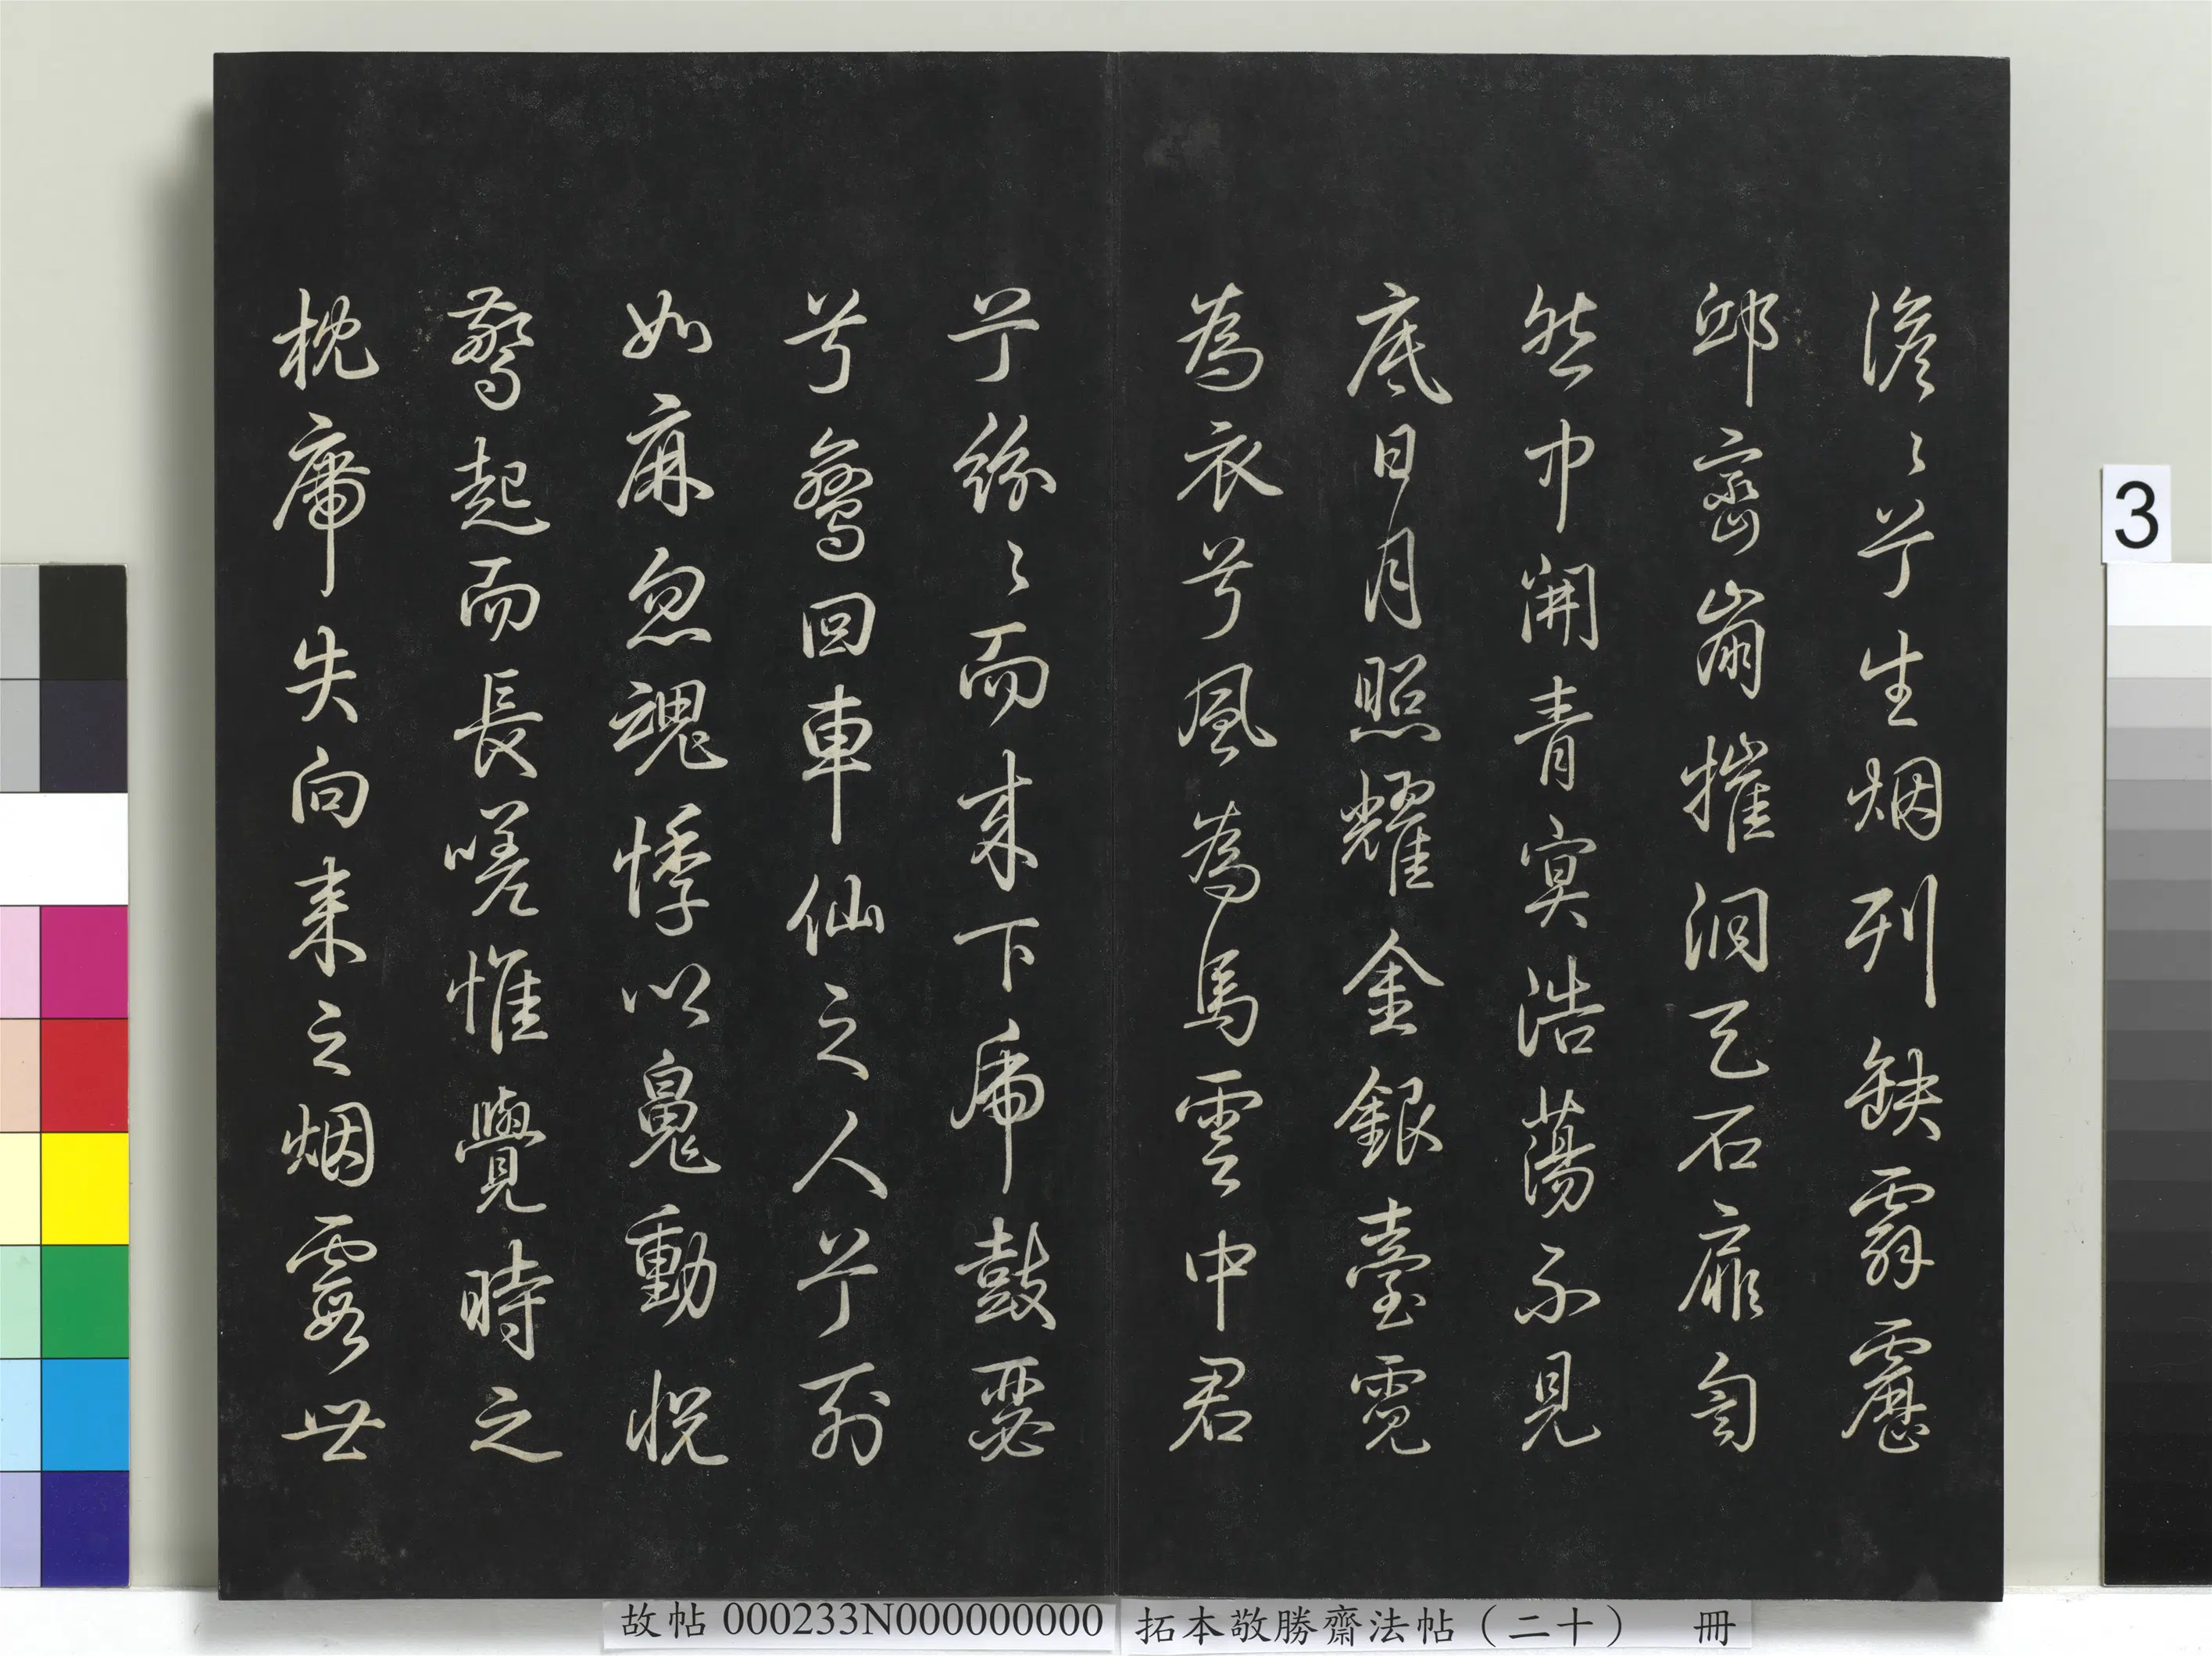 澹〻兮生烟列缺霹靂
邱巒崩摧洞天石扉訇
然中開青冥浩蕩不見
底日月照耀金銀臺霓
為衣兮風為馬雲中君
兮紛〻而來下虎鼓瑟
兮鸞回車仙之人兮列
如麻忽魂悸以魄動怳
驚起而長嗟惟覺時之
枕席失向来之烟霞世
3
故帖 000233N000000000
拓本敬勝齋法帖（二十） 冊